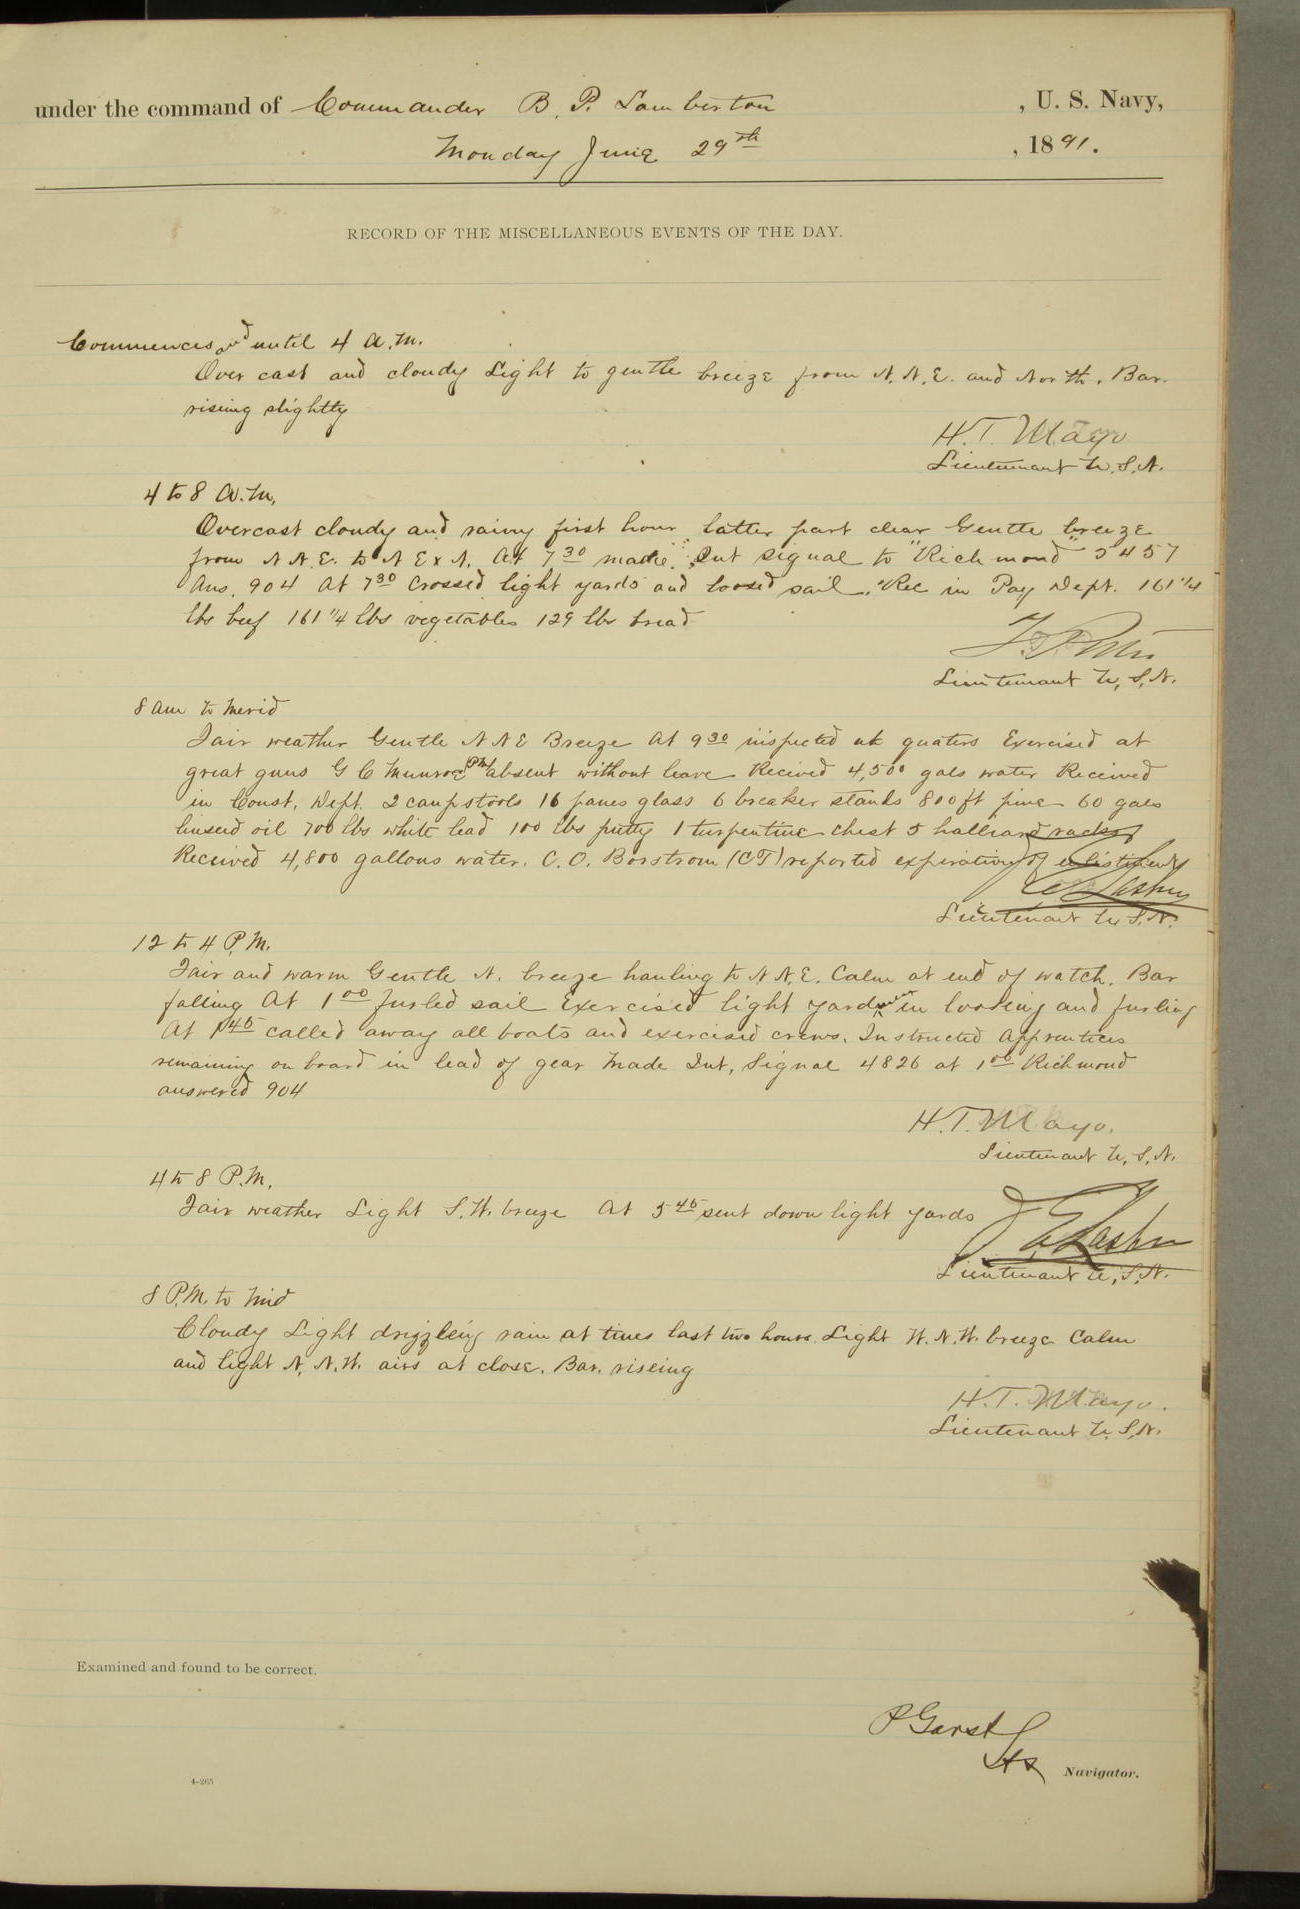 under the command of Commander B. P. Lamberton , U. S. Navy,
Monday June 29th , 1891.
RECORD OF THE MISCELLANEOUS EVENTS OF THE DAY.
Commences and until 4 A.M.
Over cast and cloudy Light to gentle breeze from N.N.E. and North. Bar.
rising slightly
H.T. Mayo
Lieutenant U.S.N.
4 to 8 A.M.
Overcast cloudy and rainy first hour latter part clear Gentle breeze
from N N.E. to N E x N. At 7 30 made Int signal to "Richmond" 5457
Ans. 904 At 7 30 Crossed light yards and loosed sail. Rec in Pay Dept. 161 1/4
lbs beef 161 1/4 lbs vegetables 129 lbs bread
Lieutenant U.S.N.
8 am to Merid
Fair weather Gentle N N E Breeze At 9 30 inspected at quaters Exercised at
great guns G C Munroe absent without leave Recived 4,500 gals water Received
in Const. Dept. 2 campstools 16 panes glass 6 breaker stands 800 ft pine 60 gals
linseed oil 700 lbs white lead 100 lbs putty 1 turpentine chest 5 halliard racks
Received 4,800 gallons water. C. O. Borstrom (CT) reported expiration of enlistment
Lieutenant U.S.N.
12 to 4 P.M.
Fair and warm Gentle N. breeze hauling to N N.E. Calm at end of watch. Bar
falling At 1 00 furled sail Exercised light yard men in loosing and furling
At 1 45 called away all boats and exercised crews. Instructed Apprentices
remaining on board in lead of gear Made Int, Signal 4826 at 1 00 Richmond
answered 904
H.T. Mayo.
Lieutenant U.S.N.
4 to 8 P.M.
Fair weather Light S.W. breeze At 5 45 sent down light yards
Lieutenant U.S.N.
8 P.M. to Mid
Cloudy Light drizzleing rain at times last two hours. Light W.N.W. breeze Calm
and light N. N.W. airs at close. Bar. riseing
H.T. Mayo.
Lieutenant U.S.N.
Examined and found to be correct.
P Garst
Navigator.
4-265